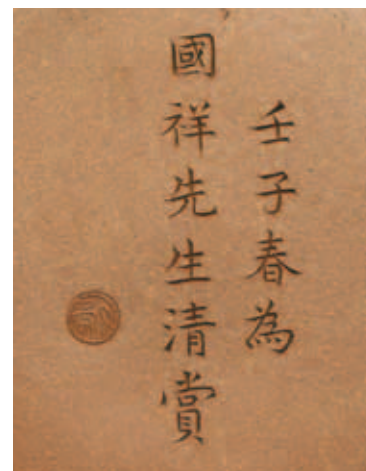 壬子春為
國祥先生清賞